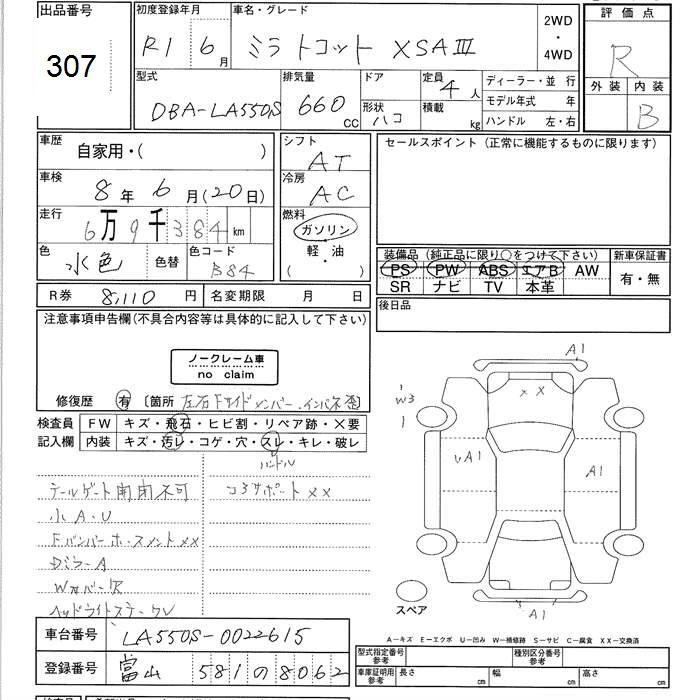 出品番号
307
初度登録年月
R1 6月
車名・グレード
ミラトコット XSAⅢ
2WD
・
4WD
評価点
R
外装 内装
B
型式
DBA-LA550S
排気量
660 cc
ドア
形状
ハコ
定員
4人
積載
kg
ディーラー・並行
モデル年式 年
ハンドル 左・右
車歴
自家用・( )
車検
8年 6月(20日)
走行
6万9千384km
色
水色
色替
色コード
B84
シフト
AT
冷房
AC
燃料
ガソリン
軽・油
( )
セールスポイント(正常に機能するものに限ります)
装備品(純正品に限り○をつけて下さい)
新車保証書
PS PW ABS エアB AW
SR ナビ TV 本革
有・無
R券 8,110円
名変期限 月 日
後日品
注意事項申告欄(不具合内容等は具体的に記入して下さい)
ノークレーム車
no claim
修復歴 有 〔箇所 左右Fサイドメンバー・インパネ歪
検査員
記入欄
FW キズ・飛石・ヒビ割・リペア跡・×要
内装 キズ・汚レ・コゲ・穴・スレ・キレ・破レ
ハンドル
テールゲート開閉不可
コアサポートXX
小A・U
Fバンパー ホースメントXX
Dミラー A
ヘッドライトステークレ
A1
W3
××
A1
A1
A1
スペア
A-キズ E-エクボ U-凹み W-補修跡 S-サビ C-腐食 XX-交換済
車台番号
LA550S-0022615
登録番号
富山 581 の 8062
型式指定番号
参考
種別区分番号
参考
車庫証明用
参考
長さ cm
幅 cm
高さ cm